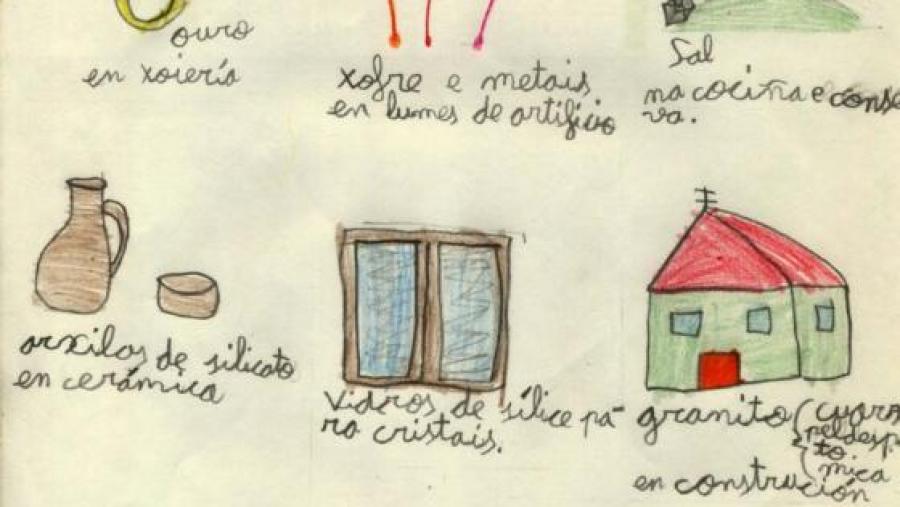 ouro
en xoiería
xofre e metais
en lumes de artificio
Sal
na cociña e conse
va.
arxilas de silicato
en cerámica
Vidros de sílice pa-
ra cristais.
granito (cuarz
peldesp
to
mica
en construción